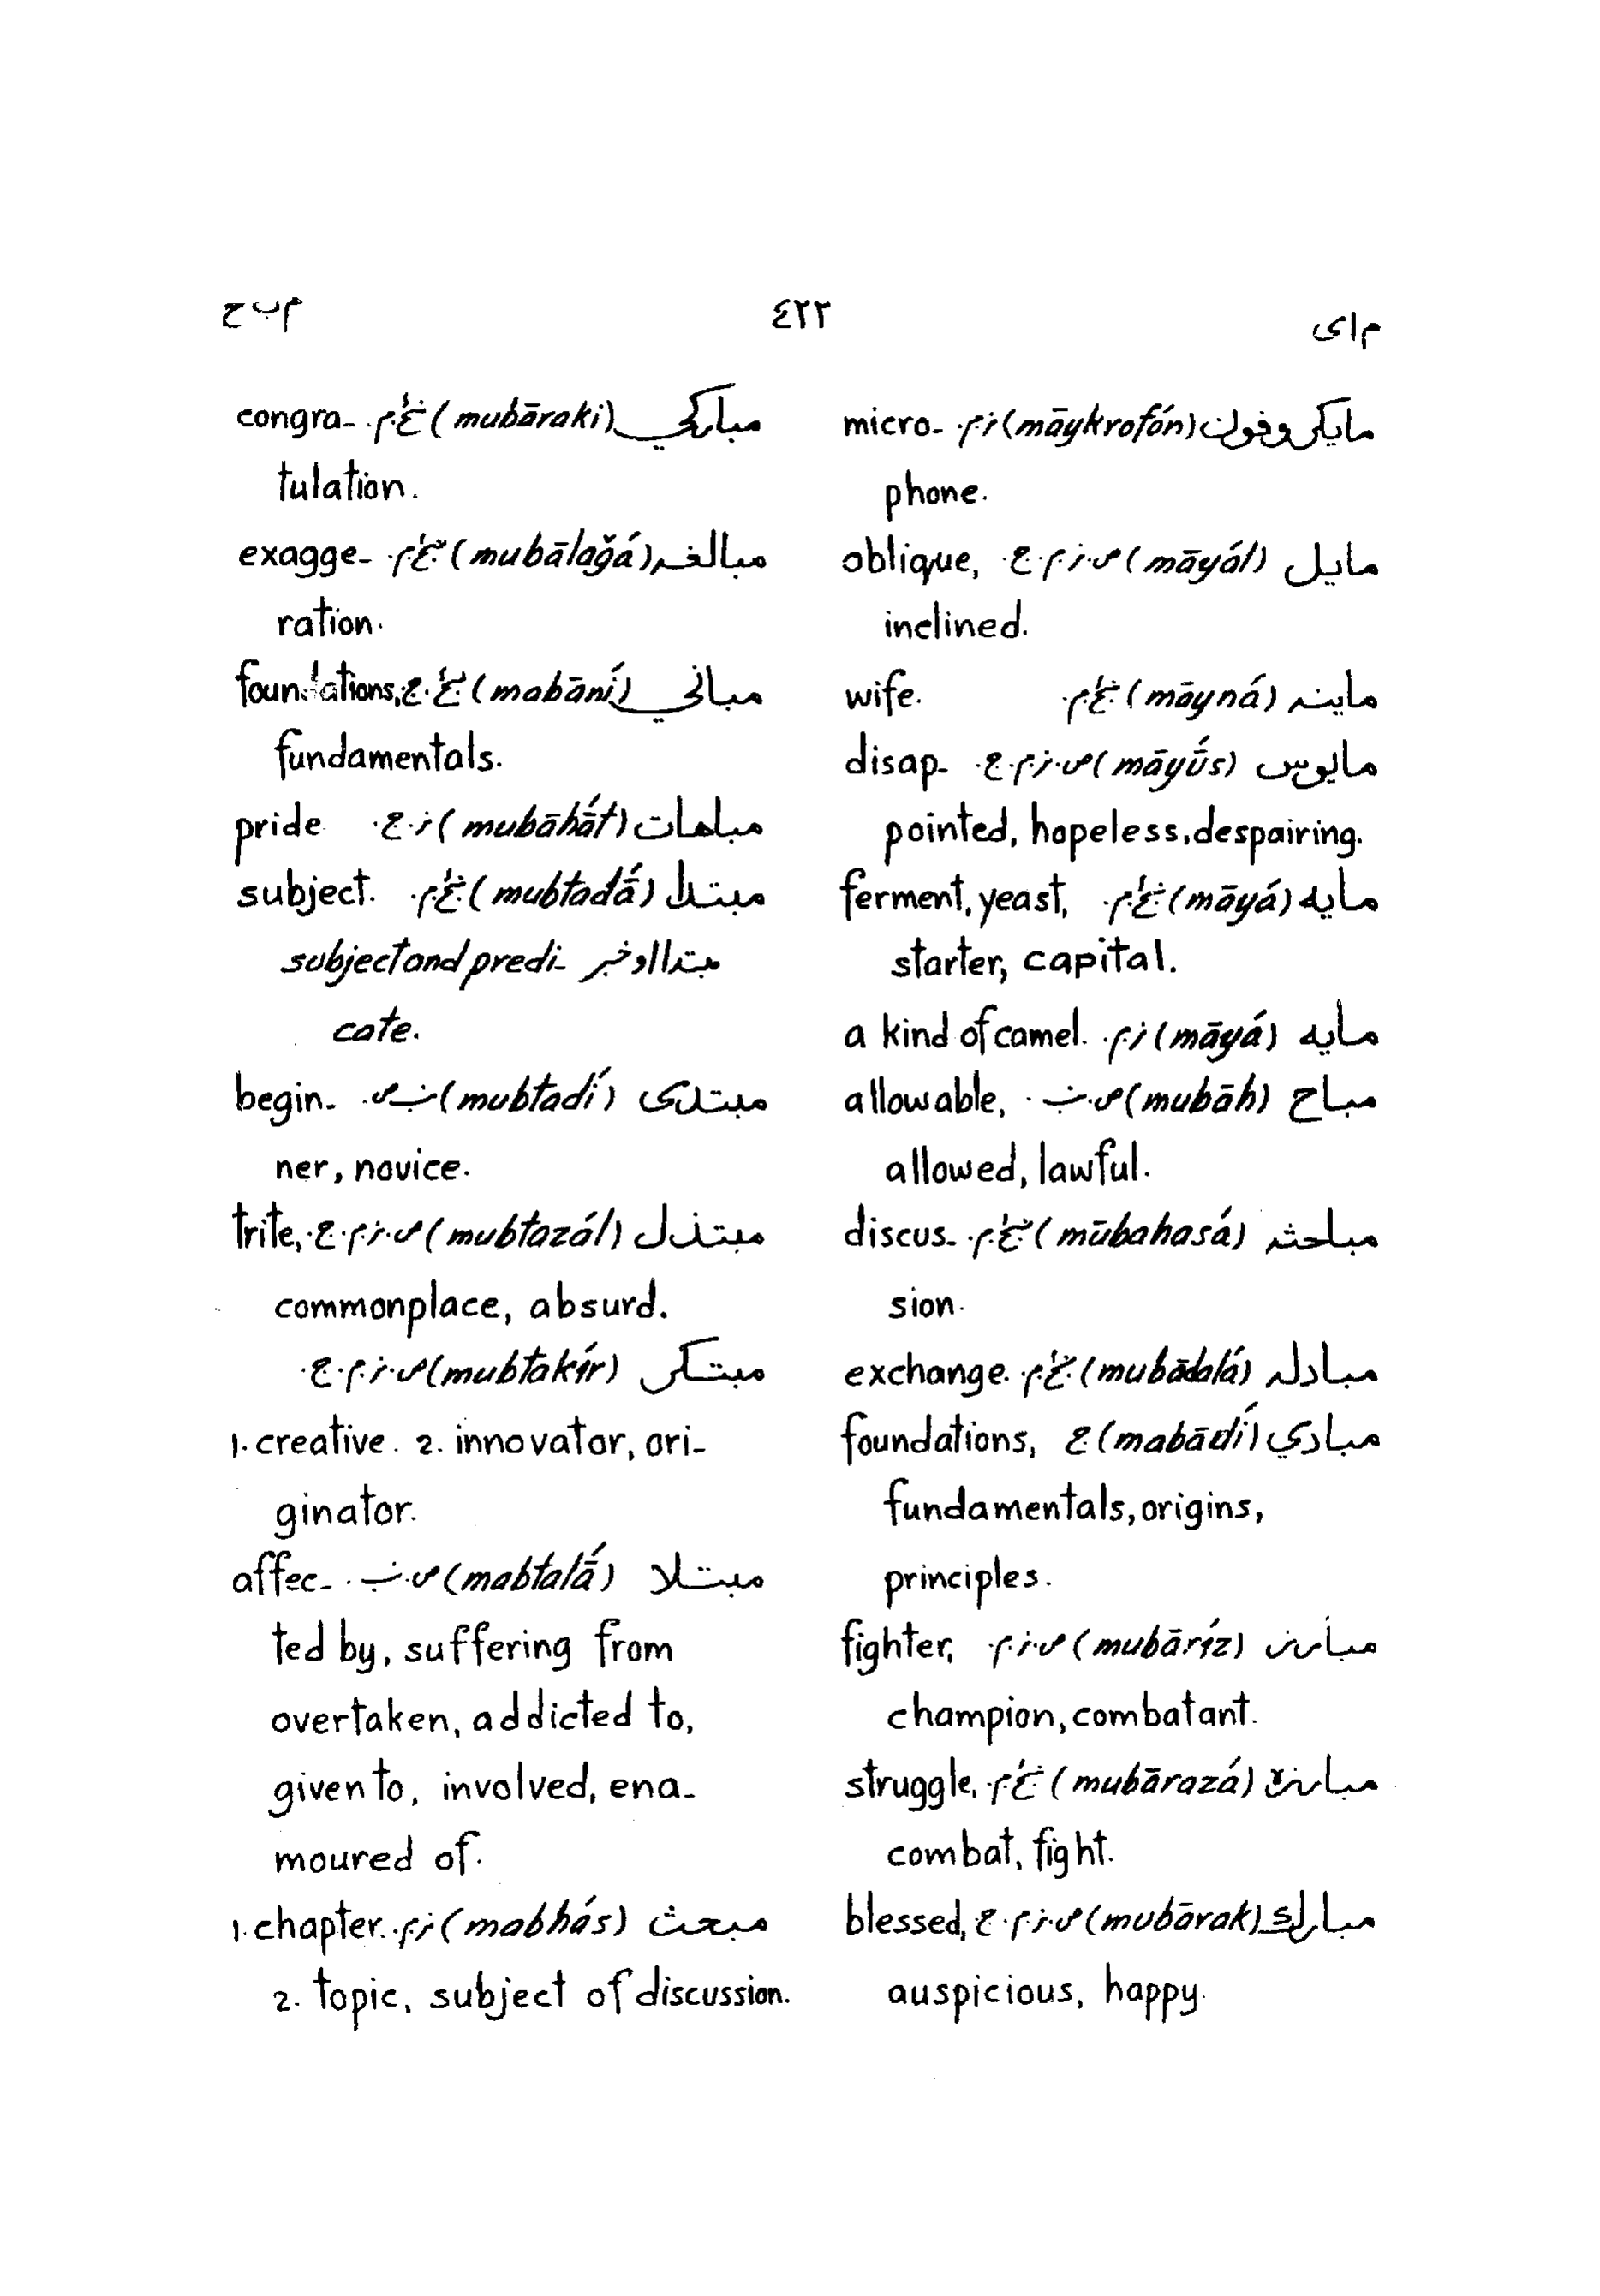 م ای
٤٢٢
م ب ح
مایکروفون (māykrofón) ز.م. micro-
phone.
مایل (māyál) ص.ز.م.ج. oblique,
inclined.
ماینه (māyná) wife.
مایوس (māyū́s) ص.ز.م.ج. disap-
pointed, hopeless, despairing.
مایه (māyá) ferment, yeast,
starter, capital.
مایه (māyá) ز.م. a kind of camel.
مباح (mubāh) allowable,
allowed, lawful.
مباحثه (mūbahasá) discus-
sion.
مبادله (mubādalá) exchange.
مبادي (mabādí) ج foundations,
fundamentals, origins,
principles.
مبارز (mubāríz) ص.ز.م. fighter,
champion, combatant.
مبارزه (mubārazá) struggle,
combat, fight.
مبارك (mubārak) ص.ز.م.ج. blessed,
auspicious, happy.
مبارکي (mubāraki) congra-
tulation.
مبالغه (mubālaǧá) exagge-
ration.
مباني (mabāní) foundations,
fundamentals.
مباهات (mubāhā́t) ز.ج. pride
مبتدا (mubtadā́) subject.
مبتدا او خبر subject and predi-
cate.
مبتدی (mubtadí) begin-
ner, novice.
مبتذل (mubtazál) ص.ز.م.ج. trite,
commonplace, absurd.
مبتکر (mubtakír) ص.ز.م.ج.
1. creative. 2. innovator, ori-
ginator.
مبتلا (mabtalā́) affec-
ted by, suffering from
overtaken, addicted to,
given to, involved, ena-
moured of.
مبحث (mabhás) ز.م. 1. chapter.
2. topic, subject of discussion.